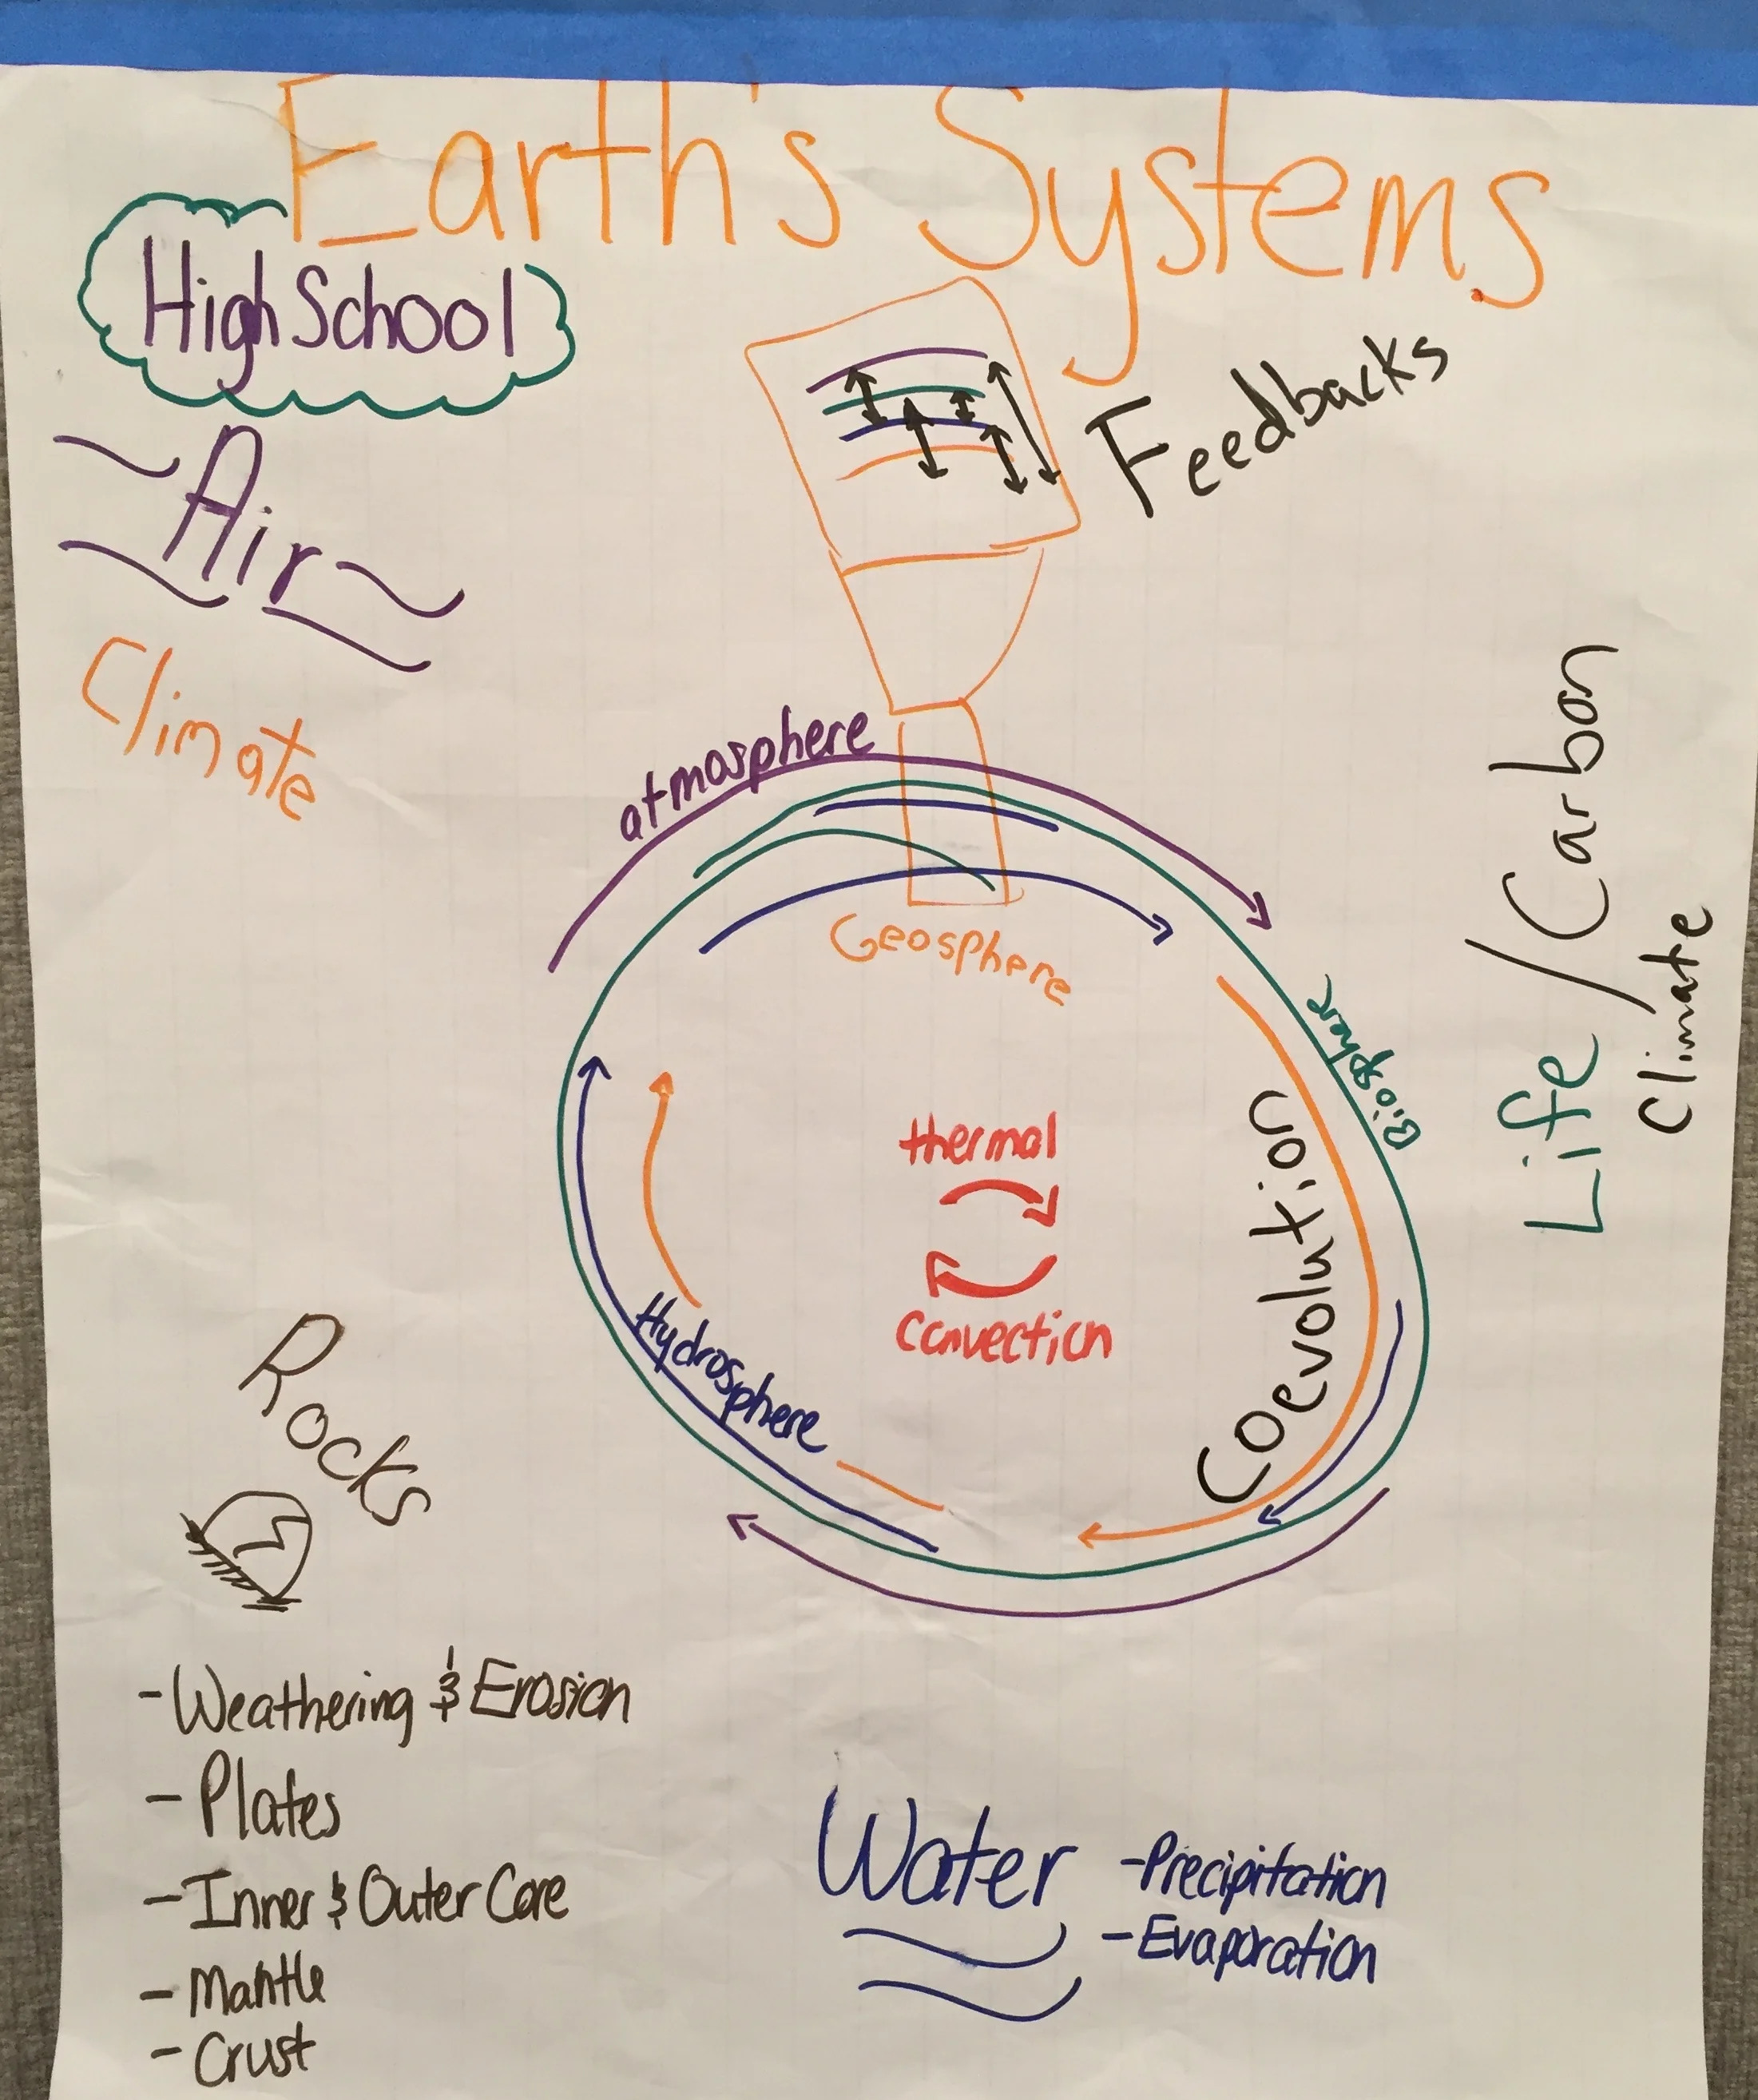 Earth's Systems
High School
Feedbacks
~Air~
Climate
atmosphere
Geosphere
Biosphere
Life / Carbon
Climate
thermal
convection
Coevolution
Hydrosphere
Rocks
- Weathering & Erosion
- Plates
- Inner & Outer Core
- Mantle
- Crust
Water
- Precipitation
- Evaporation